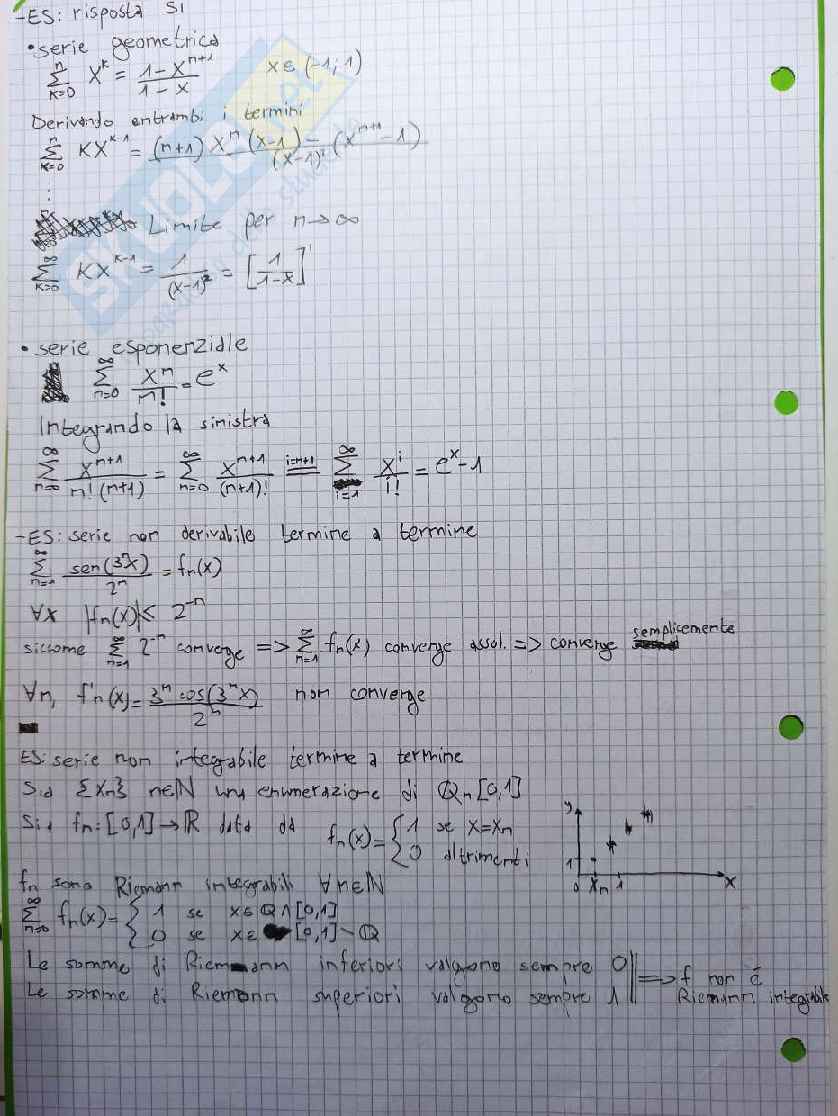 -ES: risposta SI
• serie geometrica
∑_{k=0}^{n} x^k = (1-x^{n+1})/(1-x)   x∈(-1;1)
Derivando entrambi i termini
∑_{k=0}^{n} kx^{k-1} = ((n+1) x^n (x-1) - (x^{n+1}-1))/(x-1)²
⋮
Limite per n→∞
∑_{k=0}^{∞} kx^{k-1} = 1/(x-1)² = [1/(1-x)]'
• serie esponenziale
∑_{n=0}^{∞} x^n/n! = e^x
Integrando la sinistra
∑_{n=0}^{∞} x^{n+1}/(n!(n+1)) = ∑_{n=0}^{∞} x^{n+1}/(n+1)! =^{i=n+1} ∑_{i=1}^{∞} x^i/i! = e^x-1
-ES: serie non derivabile termine a termine
∑_{n=1}^{∞} sen(3^n x)/2^n = f_n(x)
∀x |f_n(x)| ≤ 2^{-n}
siccome ∑_{n=1}^{∞} 2^{-n} converge => ∑_{n=1}^{∞} f_n(x) converge assol. => converge semplicemente
∀n, f'_n(x) = 3^n cos(3^n x)/2^n non converge
ES: serie non integrabile termine a termine
Sia {x_n} n∈ℕ una enumerazione di ℚ∩[0,1]
Sia f_n: [0,1]→ℝ data da f_n(x) = { 1 se x=x_n
0 altrimenti
y
1
0 x_n 1 x
f_n sono Riemann integrabili ∀n∈ℕ
∑_{n=0}^{∞} f_n(x) = { 1 se x∈ℚ∩[0,1]
0 se x∈[0,1]-ℚ
Le somme di Riemann inferiori valgono sempre 0 || => f non è
Le somme di Riemann superiori valgono sempre 1 || Riemann integrabile
SKUOLA